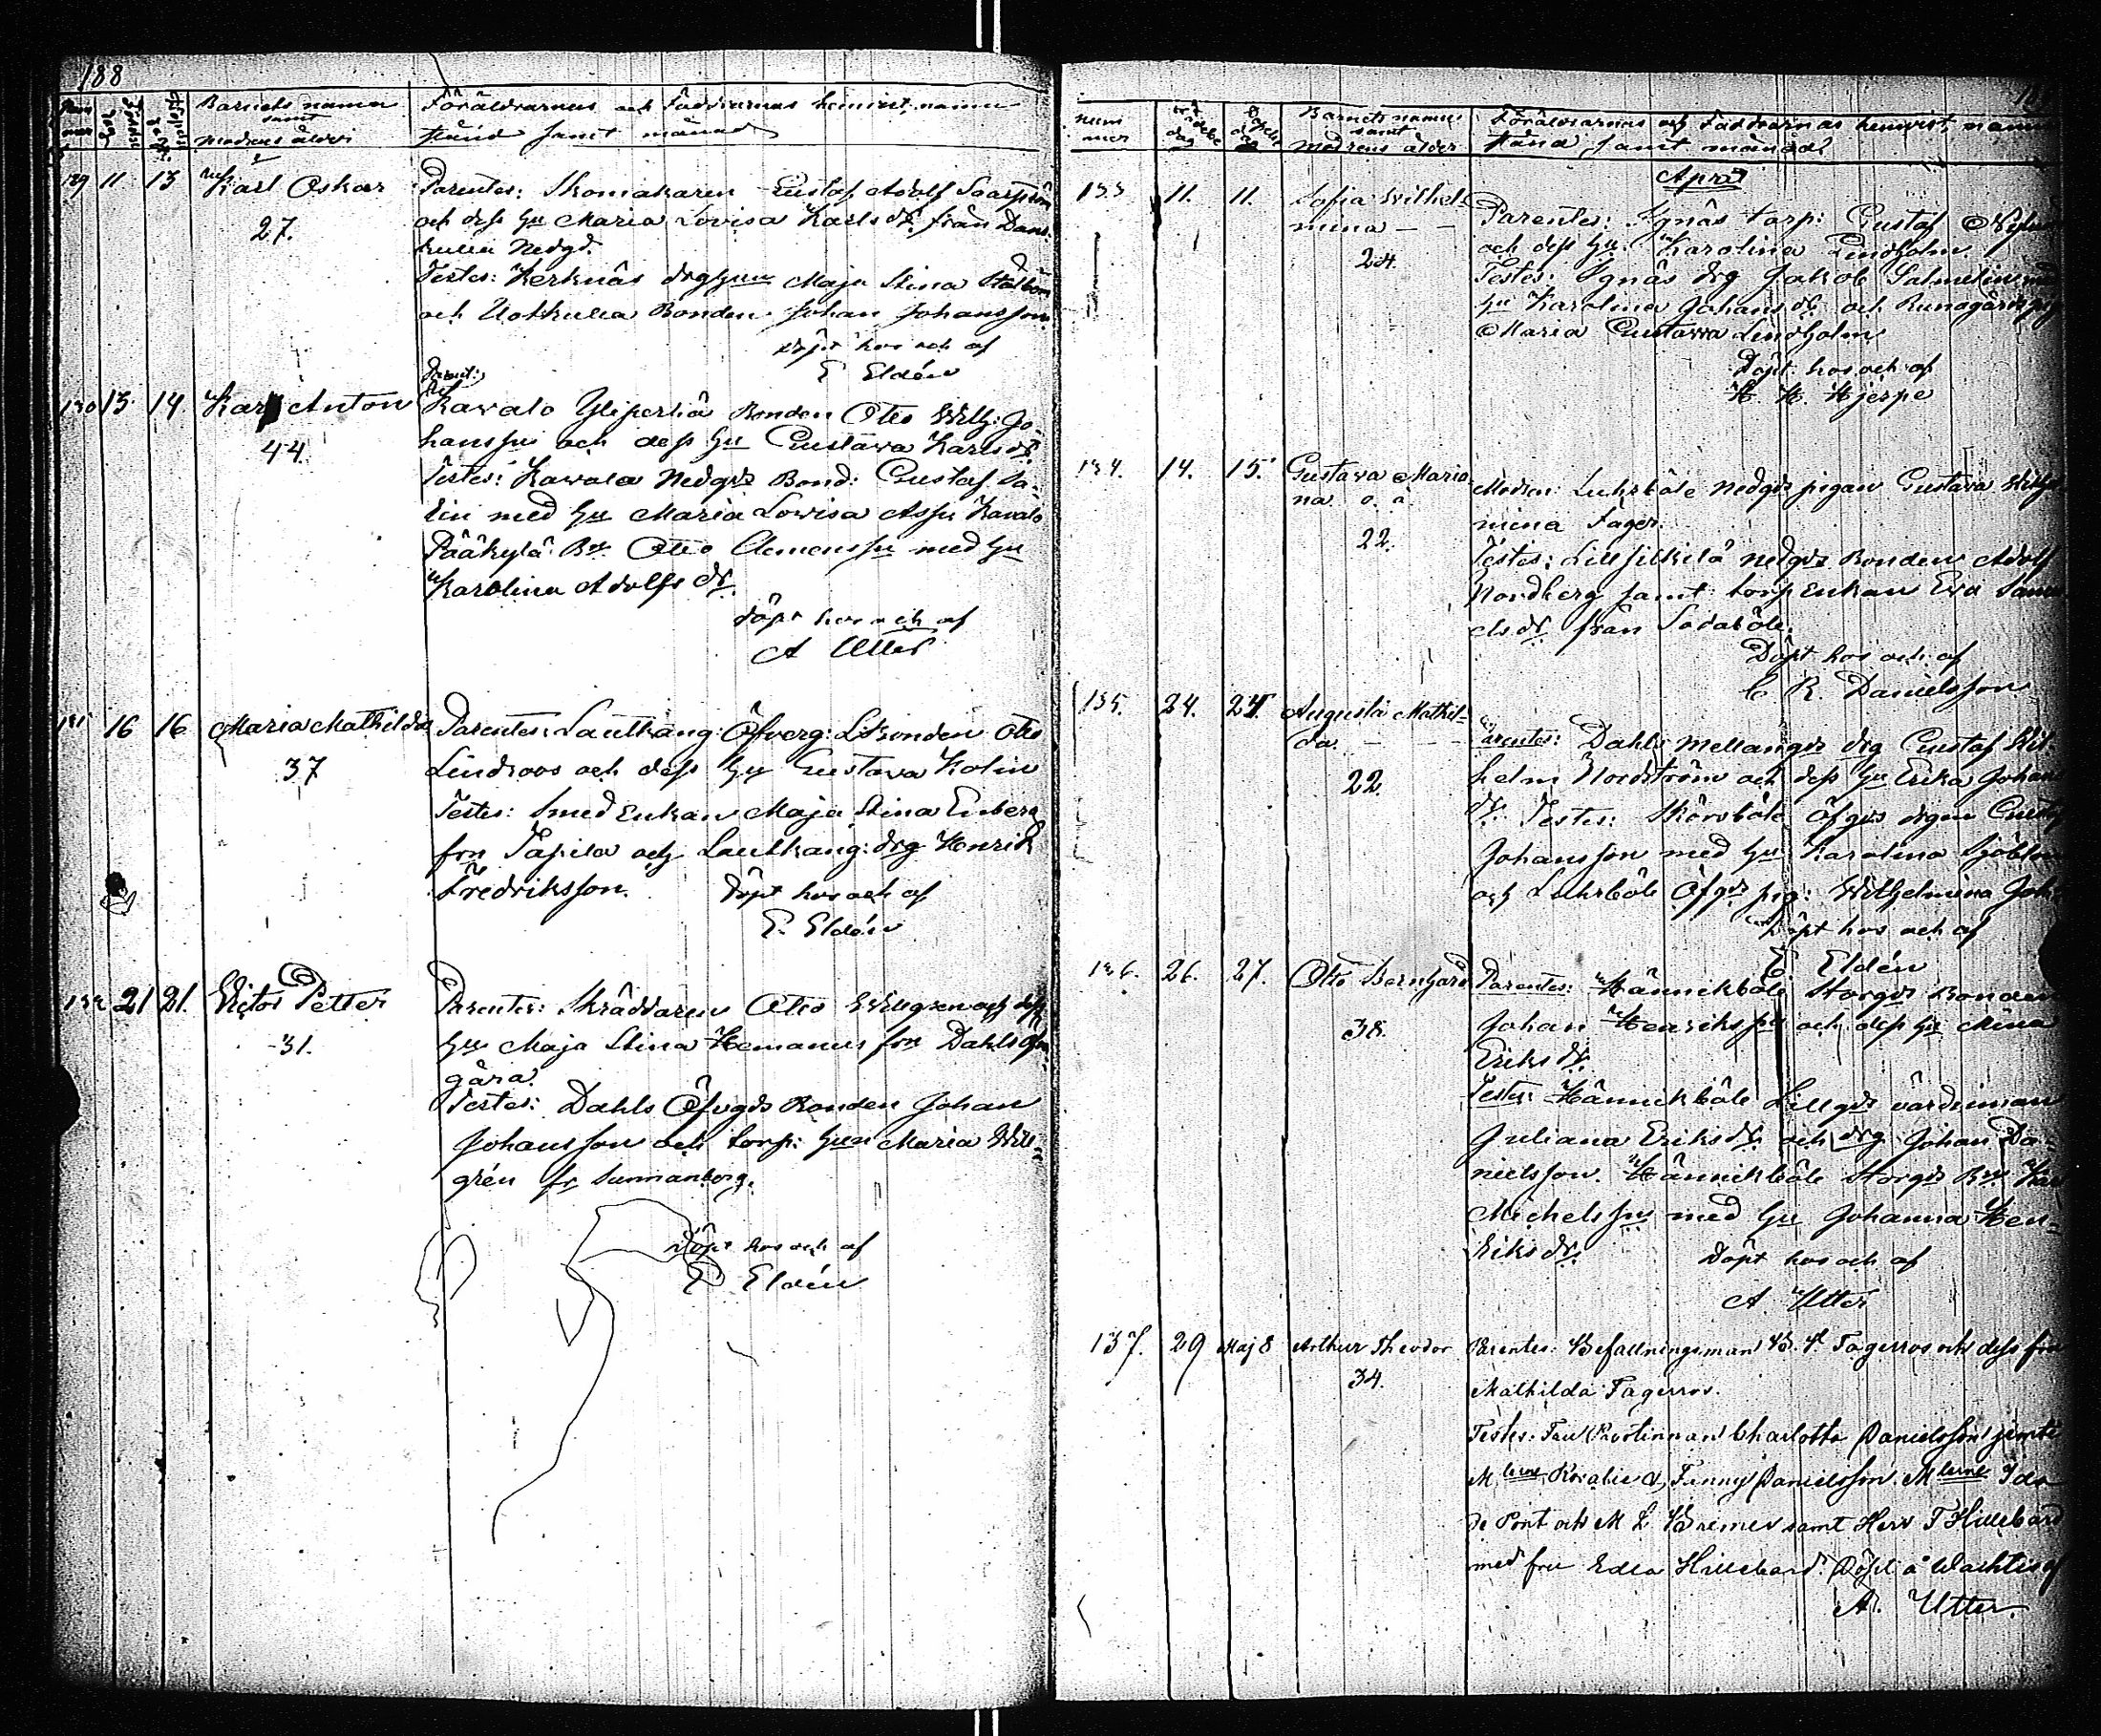 188
Nummer
Födelse dag
Döpelse dag
Barnets namn samt modrens ålder
Föräldrarnas och Faddrarnas hemvist, namn
stånd samt månad
129 11 13 Karl Oskar
27.
Parentes: Skomakaren Gustaf Adolf
och dess hu Maria Lovisa Karlsdr från Dans-
kulla Nedgd.
Testes: Kerknäs drghun Maja Stina
och Uokkulla Bonden Johan Johansson
Döpt hos och af
E Eldén
130 13 14 Karl Anton
44.
Parent:
Kavalo Yliperhä Bonden Otto Wilh: Jo-
hanssn och dess hu Gustava Karlsdr.
Testes: Kawala Nedgds Bond: Gustaf
med hu Maria Lovisa Kavalo
Pääkylä Bn Otto Clemenssn med hu
Karolina Adolfsdr.
Döpt hos och af
A Utter
131 16 16 Maria Mathilda
37
Parentes: Lautkang: Öfverg: Bonden Otto
Lindroos och dess hu Gustava Kolin
Testes: Smed Enkan Maja Stina Enberg
frn Tapila och Lautkang: drg Henrik
Fredriksson. Döpt hos och af
E. Eldén
132 21 21. Victor Petter
31.
Parentes: Skräddaren Otto Willgren och dess
hu Maja Stina Hemanus frn Dahls Öfv-
gård.
Testes: Dahls Öfvgds Bonden Johan
Johansson och torp: hun Maria Will-
grén fr Sunnanberg.
Döpt hos och af
E Eldén
nummer
födelse dag
Döpelse dag
Barnets namn samt Modrens ålder
Föräldrarnas och Faddrarnas hemvist, namn
stånd, samt månad
April
133 11. 11. Sofia Wilhel-
mina - -
24.
Parentes: Ignäs torp: Gustaf
och dess hu. Karolina Lindholm.
Testes: Ignäs drg Jakob Salmelin med
hu Karolina Johansdr. och Runagårds pig
Maria Gustava Lindholm
Döpt hos och af
K. H. Hjerpe
134. 14. 15. Gustava Maria-
na o. ä.
22.
Modren: Luhrböle Nedgds pigan Gustava Wilhel
mina Fager.
Testes: Lillsilkilä Nedgds Bonden Adolf
Nordberg samt torpenkan Eva Samu
elsdr från Sodaböle.
Döpt hos och af
C R. Danielsson
135. 24. 24. Augusta Mathil-
da. - -
22.
Parentes: Dahls Mellangds drg Gustaf Wil-
helm Nordström och dess hu Erika Johans
dr. Testes: Skörböle Öfgds drgen Gustaf
Johansson med hu Karolina Sjöblom
och Luhrböle Öfgds pig: Wilhelmina Joh:
Döpt hos och af
E. Eldén
136. 26. 27. Otto Bernhard
38.
Parentes: Hännikböle Storgds Bonden
Johan Henrikssn och dess hu Mina
Eriksdr.
Testes: Hännikböle Lillgds värdinnan
Juliana Eriksdr. och drg Johan Da-
nielsson. Hännikböle Storgds Bn
Michelssn med hu Johanna Hen-
riksdr. Döpt hos och af
A. Utter
137. 29 Maj 8 Arthur Theodor
34.
Parentes: Befallningsman Fagerros och dess fru
Mathilda Fagerros.
Testes: Fru Prostinnan Charlotta Danielsson jemte
Rosalie & Fanny Danielsson. Ida
de Pont och M L Bremer samt Herr T Hillebard
med fru Edla Hillebard. Döpt å Wachtis af
A. Utter.